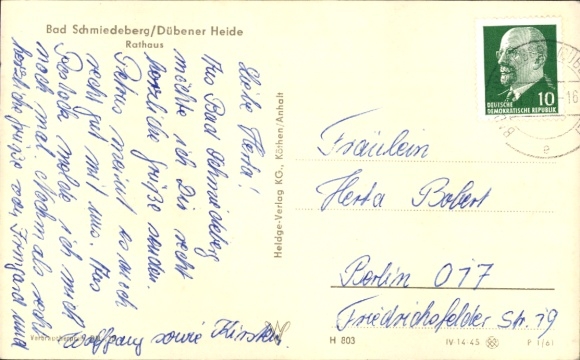 Bad Schmiedeberg/Dübener Heide
Rathaus
Liebe Herta!
Aus Bad Schmiedeberg
möchte ich Dir recht
herzliche Grüße senden.
Petrus meint es auch
recht gut mit uns. Aus
melde ich mich
noch mal. Nochmals recht
herzliche Grüße von Irmgard und
Wolfgang sowie
Heldge-Verlag KG., Köthen/Anhalt
DEUTSCHE
DEMOKRATISCHE REPUBLIK
10
Fräulein
Herta Bobert
Berlin O17
Friedrichsfelder Str. 19
H 803
IV-14-45
P 1/61